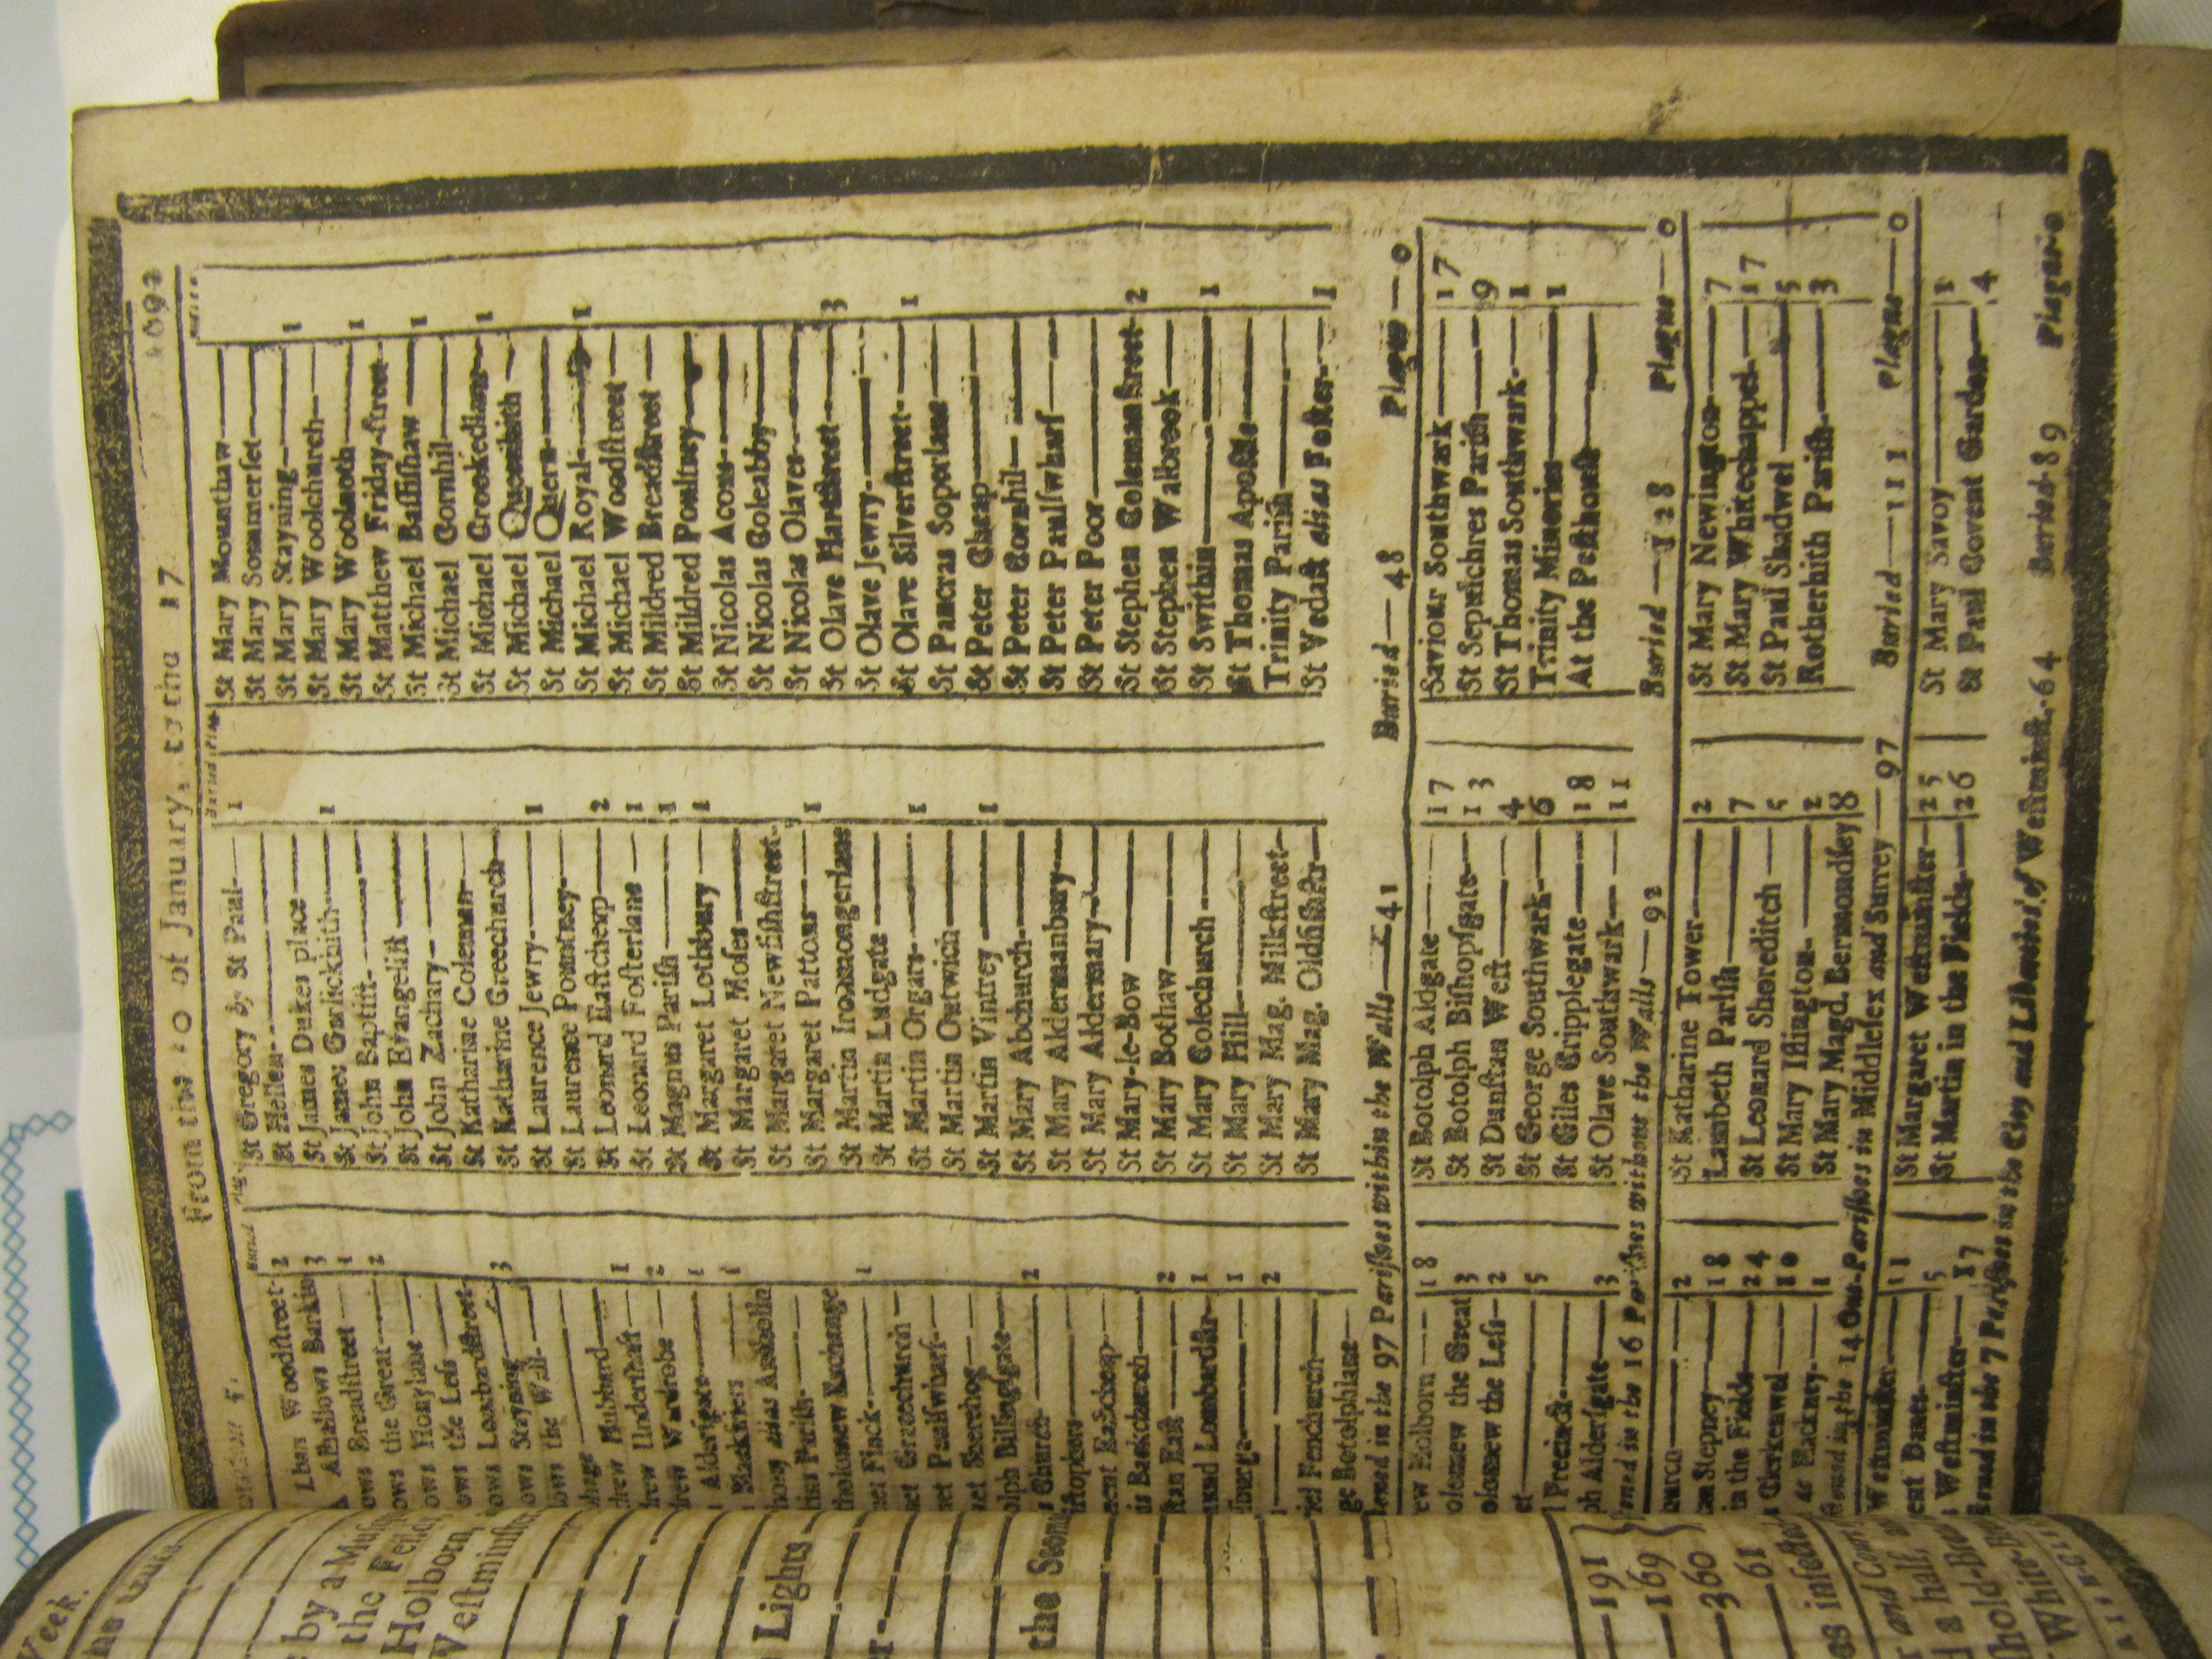 From the 10 of January, to the 17
1692
Lbans Woodstreet- 2
Alhallows Barkin 3
ows Breadstreet 1
ows the Great 2
ows Honylane
ows the Less
ows Lombardstreet- 3
ows Stayning
lows the Wall
drew Hubbard 1
drew Undershaft 2
drew Wardrobe 1
Aldersgate 1
Blackfriers
hony alias Antholin
tins Parish-
tholomew Exchange 1
net Finck
net Gracechurch
net Paulswharf-
net Sherehog
olph Billingsgate 2
s Church
istophers
ment Eastcheap
is Backchurch 2
stan East 1
und Lombardstr 1
2
riel Fenchurch
ge Botolphlane
St Gregory by St Paul 1
St Hellen
St James Dukes place
St James Garlickhith 1
St John Baptist
St John Evangelist
St John Zachary
St Katharine Coleman
St Katharine Creechurch
St Laurence Jewry 1
St Laurence Pountney
St Leonard Eastcheap 2
St Leonard Fosterlane 1
St Magnus Parish 1
St Margaret Lothbury 1
St Margaret Moses
St Margaret Newfishstreet
St Margaret Pattons 1
St Martin Ironmongerlane
St Martin Ludgate
St Martin Orgars 1
St Martin Outwich
St Martin Vintrey 1
St Mary Abchurch
St Mary Aldermanbury
St Mary Aldermary
St Mary-le-Bow
St Mary Bothaw
St Mary Colechurch
St Mary Hill
St Mary Mag. Milkstreet
St Mary Mag. Oldfishstr
St Mary Mounthaw
St Mary Sommerset
St Mary Stayning 1
St Mary Woolchurch
St Mary Woolnoth 1
St Matthew Friday-street
St Michael Bassishaw 1
St Michael Cornhil
St Michael Crookedlane 1
St Michael Queenhith
St Michael Quern
St Michael Royal 1
St Michael Woodstreet
St Mildred Breadstreet
St Mildred Poultrey
St Nicolas Acons
St Nicolas Coleabby
St Nicolas Olaves
St Olave Hartstreet 3
St Olave Jewry
St Olave Silverstreet 1
St Pancras Soperlane
St Peter Cheap
St Peter Cornhil
St Peter Paulswharf
St Peter Poor
St Stephen Colemanstreet 2
St Stephen Walbrook
St Swithin 1
St Thomas Apostle
Trinity Parish
St Vedast alias Foster 1
stened in the 97 Parishes within the Walls 41 Buried 48 Plague 0
ew Holborn 18
olomew the Great 3
olomew the Less 2
et 5
l Precinct
ph Aldersgate 3
St Botolph Aldgate 17
St Botolph Bishopsgate 13
St Dunstan West 4
St George Southwark 6
St Giles Cripplegate 18
St Olave Southwark 11
Saviour Southwark 17
St Sepulchres Parish 9
St Thomas Southwark 1
Trinity Minories 1
At the Pesthouse
stened in the 16 Parishes without the Walls 92 Buried 128 Plague 0
2
an Stepney 18
in the Fields 24
s Clerkenwel 10
at Hackney 1
St Katharine Tower 2
Lambeth Parish 7
St Leonard Shoreditch 5
St Mary Islington 2
St Mary Magd. Bermondsey 8
St Mary Newington 7
St Mary Whitechappel 17
St Paul Shadwel 5
Rotherhith Parish 3
stened in the 14 Out-Parishes in Middlesex and Surrey 97 Buried 111 Plague 0
Westminster 11
ent Danes 5
s Westminster 17
St Margaret Westminster 25
St Martin in the Fields 26
St Mary Savoy 1
St Paul Covent Garden 4
stened in the 7 Parishes in the City and Liberties of Westminst. 64 Buried 89 Plague 0
Week.
by a Mus
the Field
Holborn,
Westminster
Lights
the Stom
191
169
360
61
es infected
r and Coun
d a half,
hold-Bre
White-Br